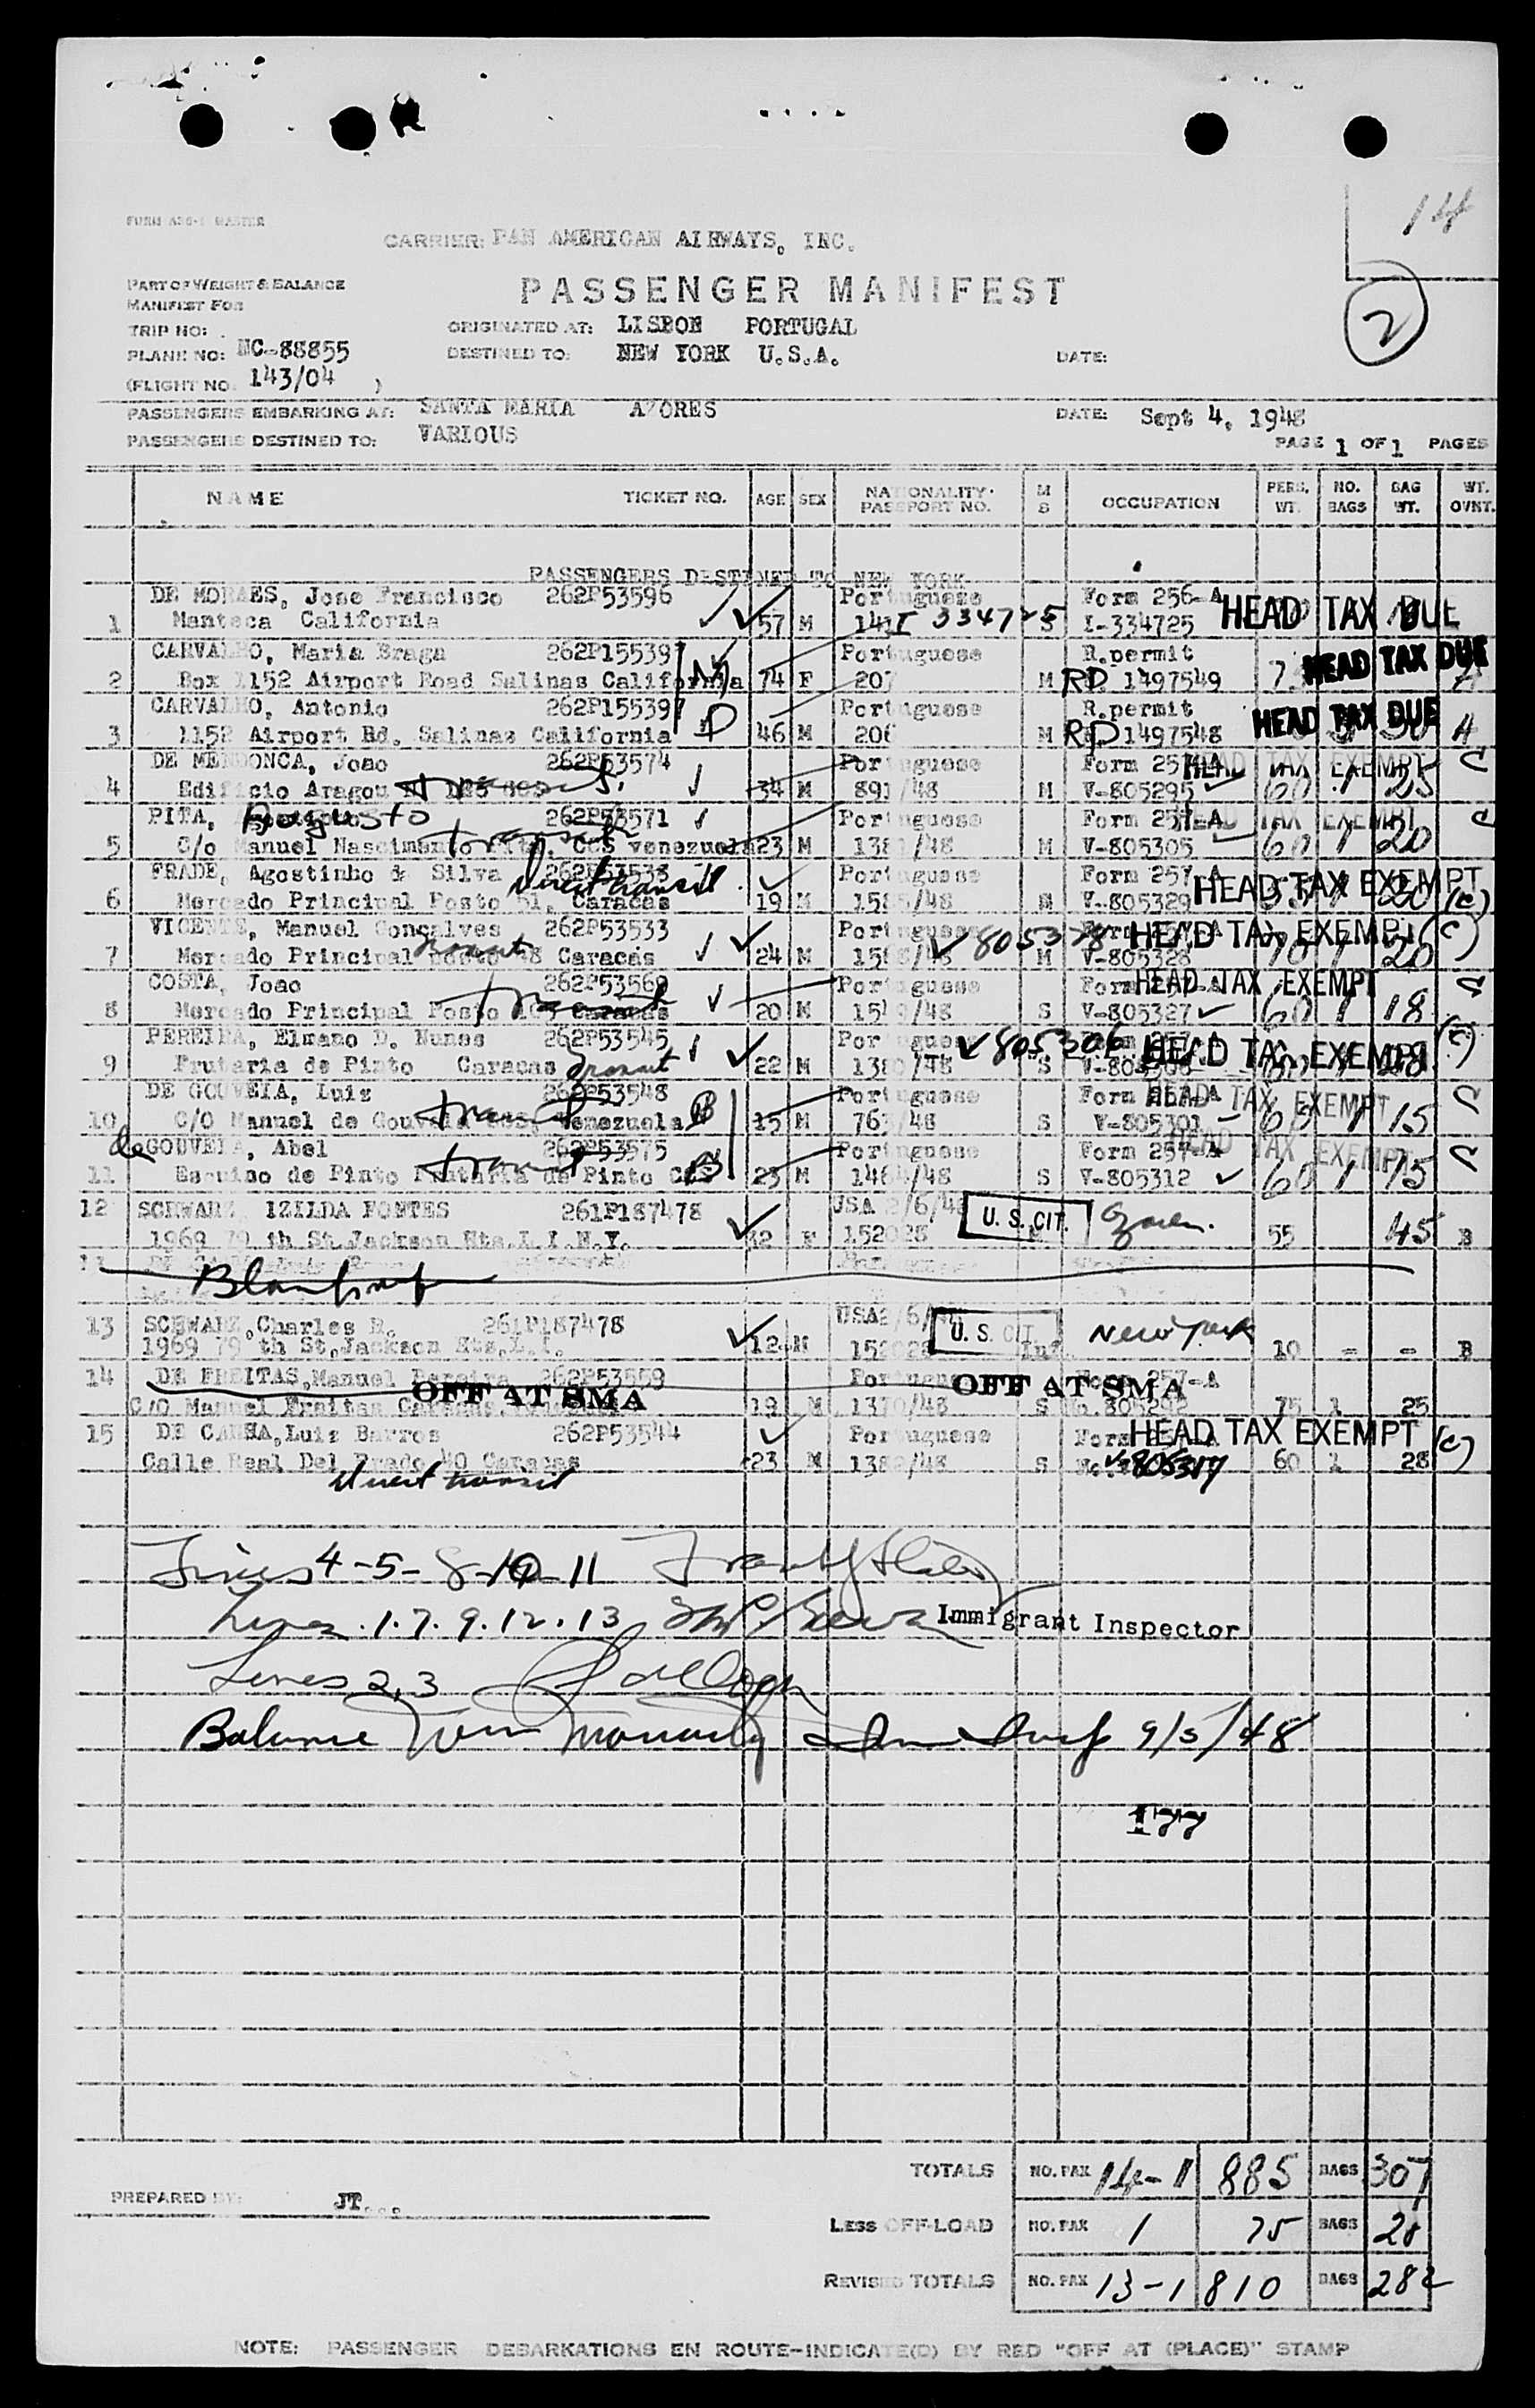 14
FORM ABG-1 MASTER
CARRIER: PAN AMERICAN AIRWAYS, INC.
PART OF WEIGHT & BALANCE
MANIFEST FOR
PASSENGER MANIFEST
2
TRIP NO:
ORIGINATED AT: LISBON PORTUGAL
PLANE NO: NC-88855
DESTINED TO: NEW YORK U.S.A.
DATE:
(FLIGHT NO. 143/04 )
PASSENGERS EMBARKING AT: SANTA MARIA AZORES
DATE: Sept 4, 1948
PASSENGERS DESTINED TO: VARIOUS
PAGE 1 OF 1 PAGES
NAME TICKET NO. AGE SEX NATIONALITY- PASSPORT NO. M S OCCUPATION PERS. WT. NO. BAGS BAG WT. WT. OVNT.
PASSENGERS DESTINED TO NEW YORK
DE MORAES, Jose Francisco 262P53596 Portuguese Form 256-A HEAD TAX DUE
1 Manteca California 57 M I 334725 S I-334725
CARVALHO, Maria Braga 262P155397 Portuguese R.permit HEAD TAX DUE
2 Box 1152 Airport Road Salinas California 74 F 207 M RP 1497549
CARVALHO, Antonio 262P155397 Portuguese R.permit HEAD TAX DUE
3 1152 Airport Rd. Salinas California 46 M 206 M RP 1497548 A
DE MENDONCA, Joao 262P53574 Portuguese Form 257-A HEAD TAX EXEMPT C
4 Edificio Aragou transit 34 M 891/48 M V-805295 60 1 25
PITA, Augusto 262P53571 Portuguese Form 257-A HEAD TAX EXEMPT C
5 C/o Manuel Nascimento transit CCS venezuela 23 M 1381/48 M V-805305 60 1 20
FRADE, Agostinho da Silva 262P53538 Portuguese Form 257-A HEAD TAX EXEMPT
6 Mercado Principal Posto 51, Caracas direct transit 19 M 1585/48 M V-805329 20 (C)
VICENTE, Manuel Gonçalves 262P53533 Portuguese 805328 HEAD TAX EXEMPT (C)
7 Mercado Principal Posto 48 Caracas transit 24 M M V-805328 70 1 20
COSTA, Joao 262P53569 Portuguese HEAD TAX EXEMPT C
8 Mercado Principal Posto transit Caracas 20 M S V-805327 60 1 18
PEREIRA, Elmano D. Nunes 262P53545 Portuguese 805306 HEAD TAX EXEMPT (C)
9 Frutaria de Pinto Caracas transit 22 M 1380/48 S
DE GOUVEIA, Luiz 262P53548 Portuguese Form 257-A HEAD TAX EXEMPT C
10 C/O Manuel de Gouveia transit Venezuela B 15 M 763/48 S V-805301 1 15
de GOUVEIA, Abel 262P53575 Portuguese Form 257-A HEAD TAX EXEMPT C
11 Esquino de Pinto Frutaria de Pinto CCS transit B 23 M 1464/48 S V-805312 60 1 15
12 SCHWARZ IZILDA FONTES 261P187478 USA 2/6/48 U. S. CIT.
1969 79 th St.Jackson Hts.L.I.N.Y. F 152028 55 45 B
13 SCHWARZ,Charles R. 261P187478 USA2/6/48 U. S. CIT. New York
1969 79 th St,Jackson Hts.L.I. 12 M 152028 Inf. 10 - - B
14 DE FREITAS,Manuel Pereira 262P53559 Portuguese Form 257-A
OFF AT SMA OFF AT SMA
C/O Manuel Freitas Caracas, 19 M 1370/48 S No.805292 75 1 25
15 DE CANHA,Luiz Barros 262P53544 Portuguese Form 257-A HEAD TAX EXEMPT (C)
Calle Real Del Prado 40 Caracas 23 M 1382/48 S 805317 60 1 28
direct transit
Lines 4-5-8-10-11
Lines .1.7.9.12.13 Immigrant Inspector
Lines 2,3
Balance Wm Imm Insp 9/5/48
177
TOTALS NO. PAX 14-1 885 BAGS 307
PREPARED BY: JT...
LESS OFF-LOAD NO. PAX 1 75 BAGS
REVISED TOTALS NO. PAX 13-1 810 BAGS 282
NOTE: PASSENGER DEBARKATIONS EN ROUTE-INDICATE(D) BY RED "OFF AT (PLACE)" STAMP